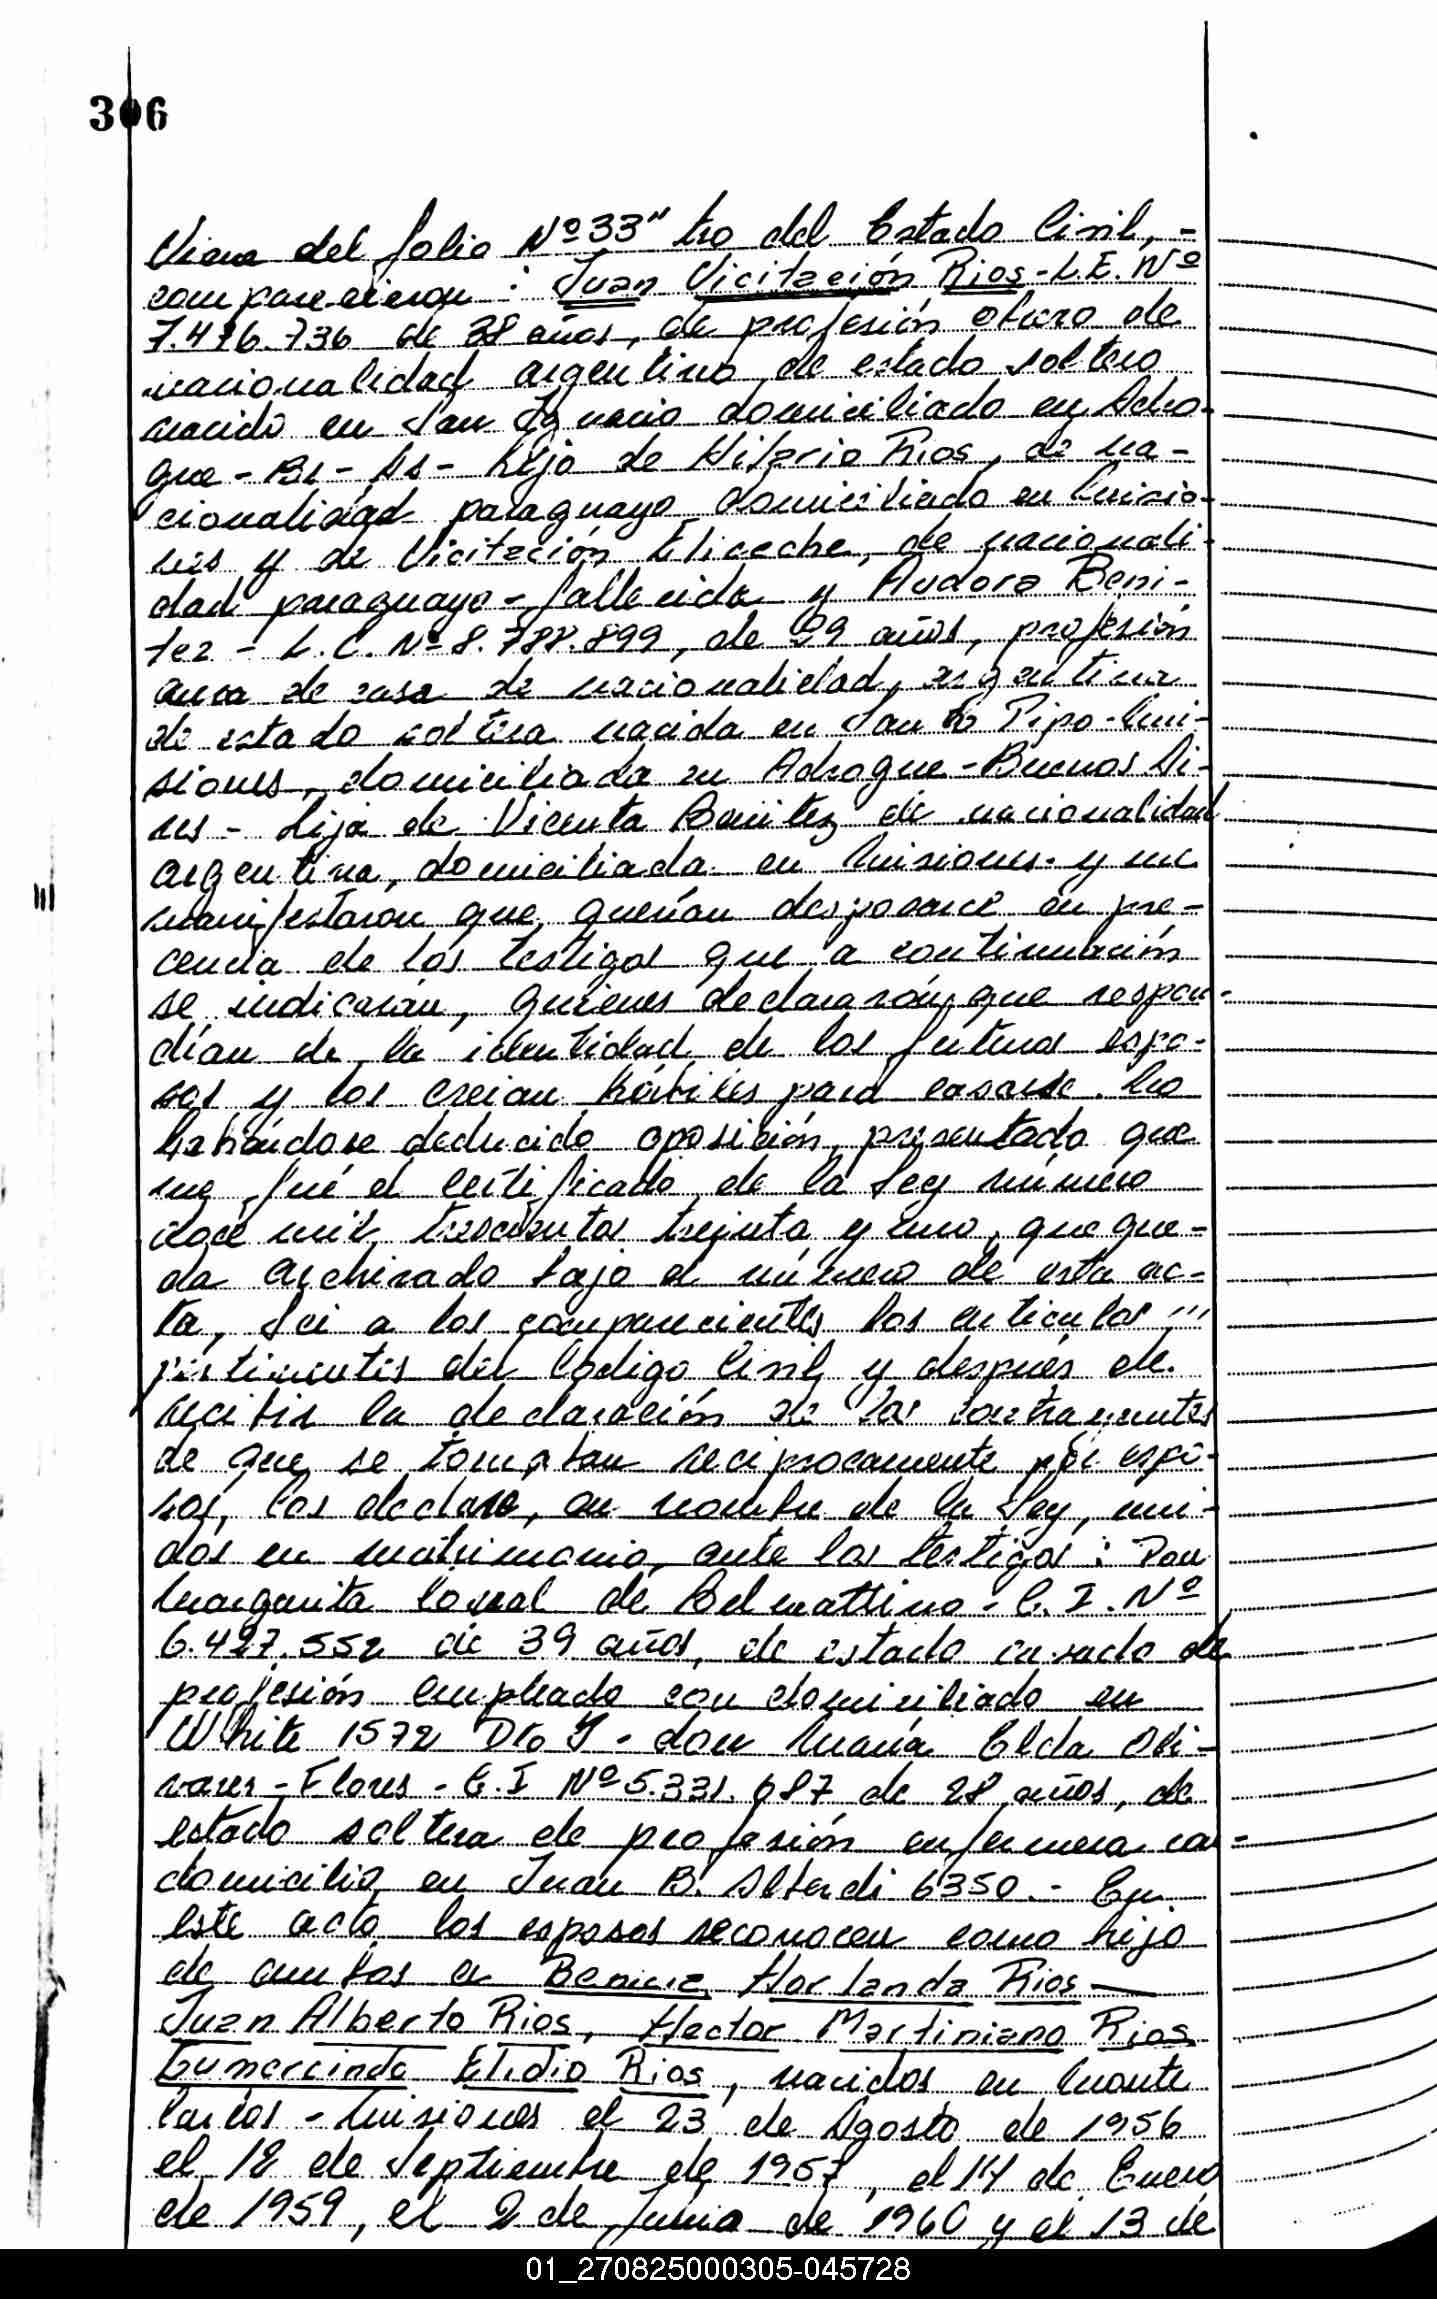 306
Viene del folio Nº 33" tro del Estado Civil, -
comparecieron : Juan Vicitación Rios - L.E. Nº
7.476.736 de 38 años, de profesión obrero de
nacionalidad argentino de estado soltero
nacido en San Ignacio domiciliado en Adro-
gue - Bs - As - hijo de Hilario Rios, de na-
cionalidad paraguayo domiciliado en Misio-
nes y de Vicitación Eliceche, de nacionali-
dad paraguaya - fallecida y Audora Beni-
tez - L.C. Nº 8.788.899, de 29 años, profesión
ama de casa de nacionalidad, argentina
de estado soltera nacida en Santo Pipo - Mi-
siones, domiciliada en Adrogue - Buenos Ai-
res - hija de Vicenta Benitez de nacionalidad
argentina, domiciliada en Misiones - y me
manifestaron que querían desposarce en pre-
cencia de los testigos que a continuación
se indicarán, quienes declararón, que respon-
dían de la identidad de los futuros espo-
sos y los creian hábiles para casarse. No
habiéndose deducido oposición, presentado que
me fué el certificado de la Ley número
doce mil trescientos treinta y uno, que que-
da archivado bajo el número de esta ac-
ta, lei a los comparecientes los articulos """
pertinentes del Codigo Civil y después de
recibir la declaración de los contrayentes
de que se tomaban reciprocamente por espo-
sos, los declaro, en nombre de la Ley, uni-
dos en matrimonio, ante los testigos : Don
Margarita Corral de Belmattino - C.I. Nº
6.427.552 de 39 años, de estado casado de
profesión empleado con domiciliado en
White 1572 Dto - don María Elda Oli-
vares - Flores - C.I Nº 5.331.687 de 28 años, de
estado soltera de profesión enfermera con
domicilio en Juan B. Alberdi 6350 - En
este acto los esposos reconocen como hijo
de ambos a Horlanda Rios —
Juan Alberto Rios, Hector Martiniano Rios
Gumercindo Elidio Rios, nacidos en Monte
Carlos - Misiones el 23 de Agosto de 1956
el 18 de Septiembre de 1957, el 14 de Enero
de 1959, el 2 de Junio de 1960 y el 13 de
01_270825000305-045728